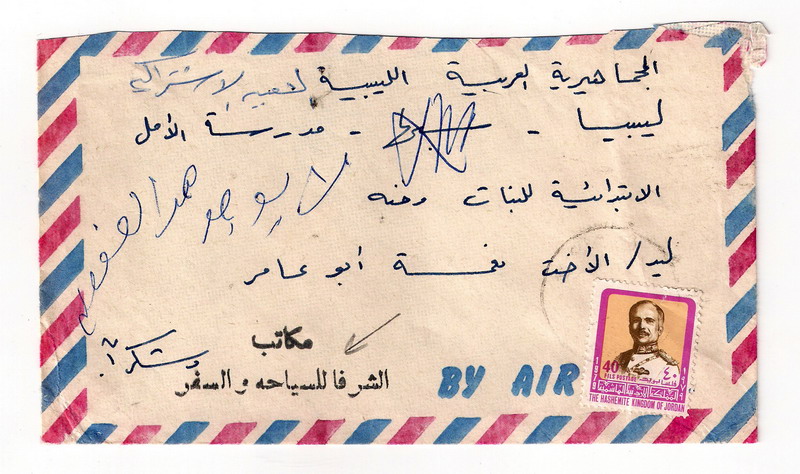 الجماهيرية العربية الليبية الشعبية الاشتراكية
ليبيا - مدرسة الأمل
الابتدائية للبنات
ليد / الأخت نعمة أبو عامر
وشكراً
مكاتب
الشرفا للسياحه والسفر
BY AIR
40
٤٠
FILS POSTAGE
THE HASHEMITE KINGDOM OF JORDAN